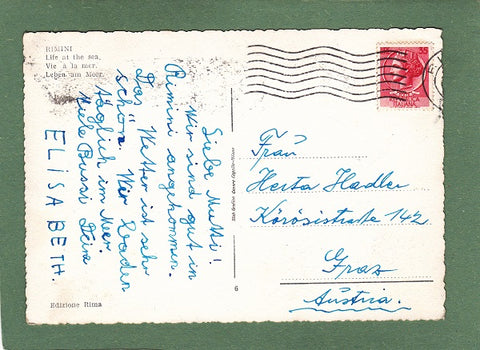 RIMINI
Life at the sea.
Vie à la mer.
Leben am Meer.
Liebe Mutti!
Wir sind gut in
Rimini angekommen.
Das Wetter ist sehr
schön. Wir baden
täglich im Meer.
Viele Bussi Deine
ELISABETH.
Edizione Rima
6
35
ITALIANE
Frau
Herta Hadler
Körösistraße 142
Graz
Austria.